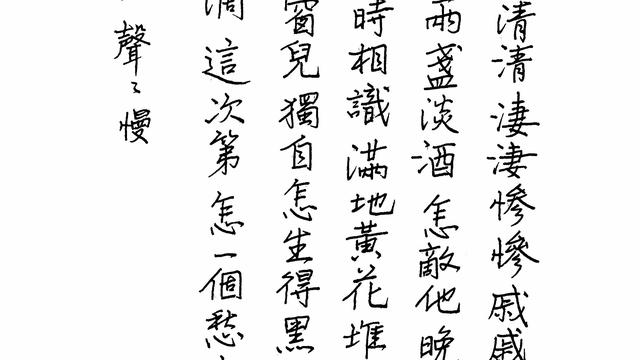 清清淒淒慘慘戚戚
兩盞淡酒怎敵他晚
時相識滿地黃花堆
窗兒獨自怎生得黑
滴這次第怎一個愁
聲〻慢